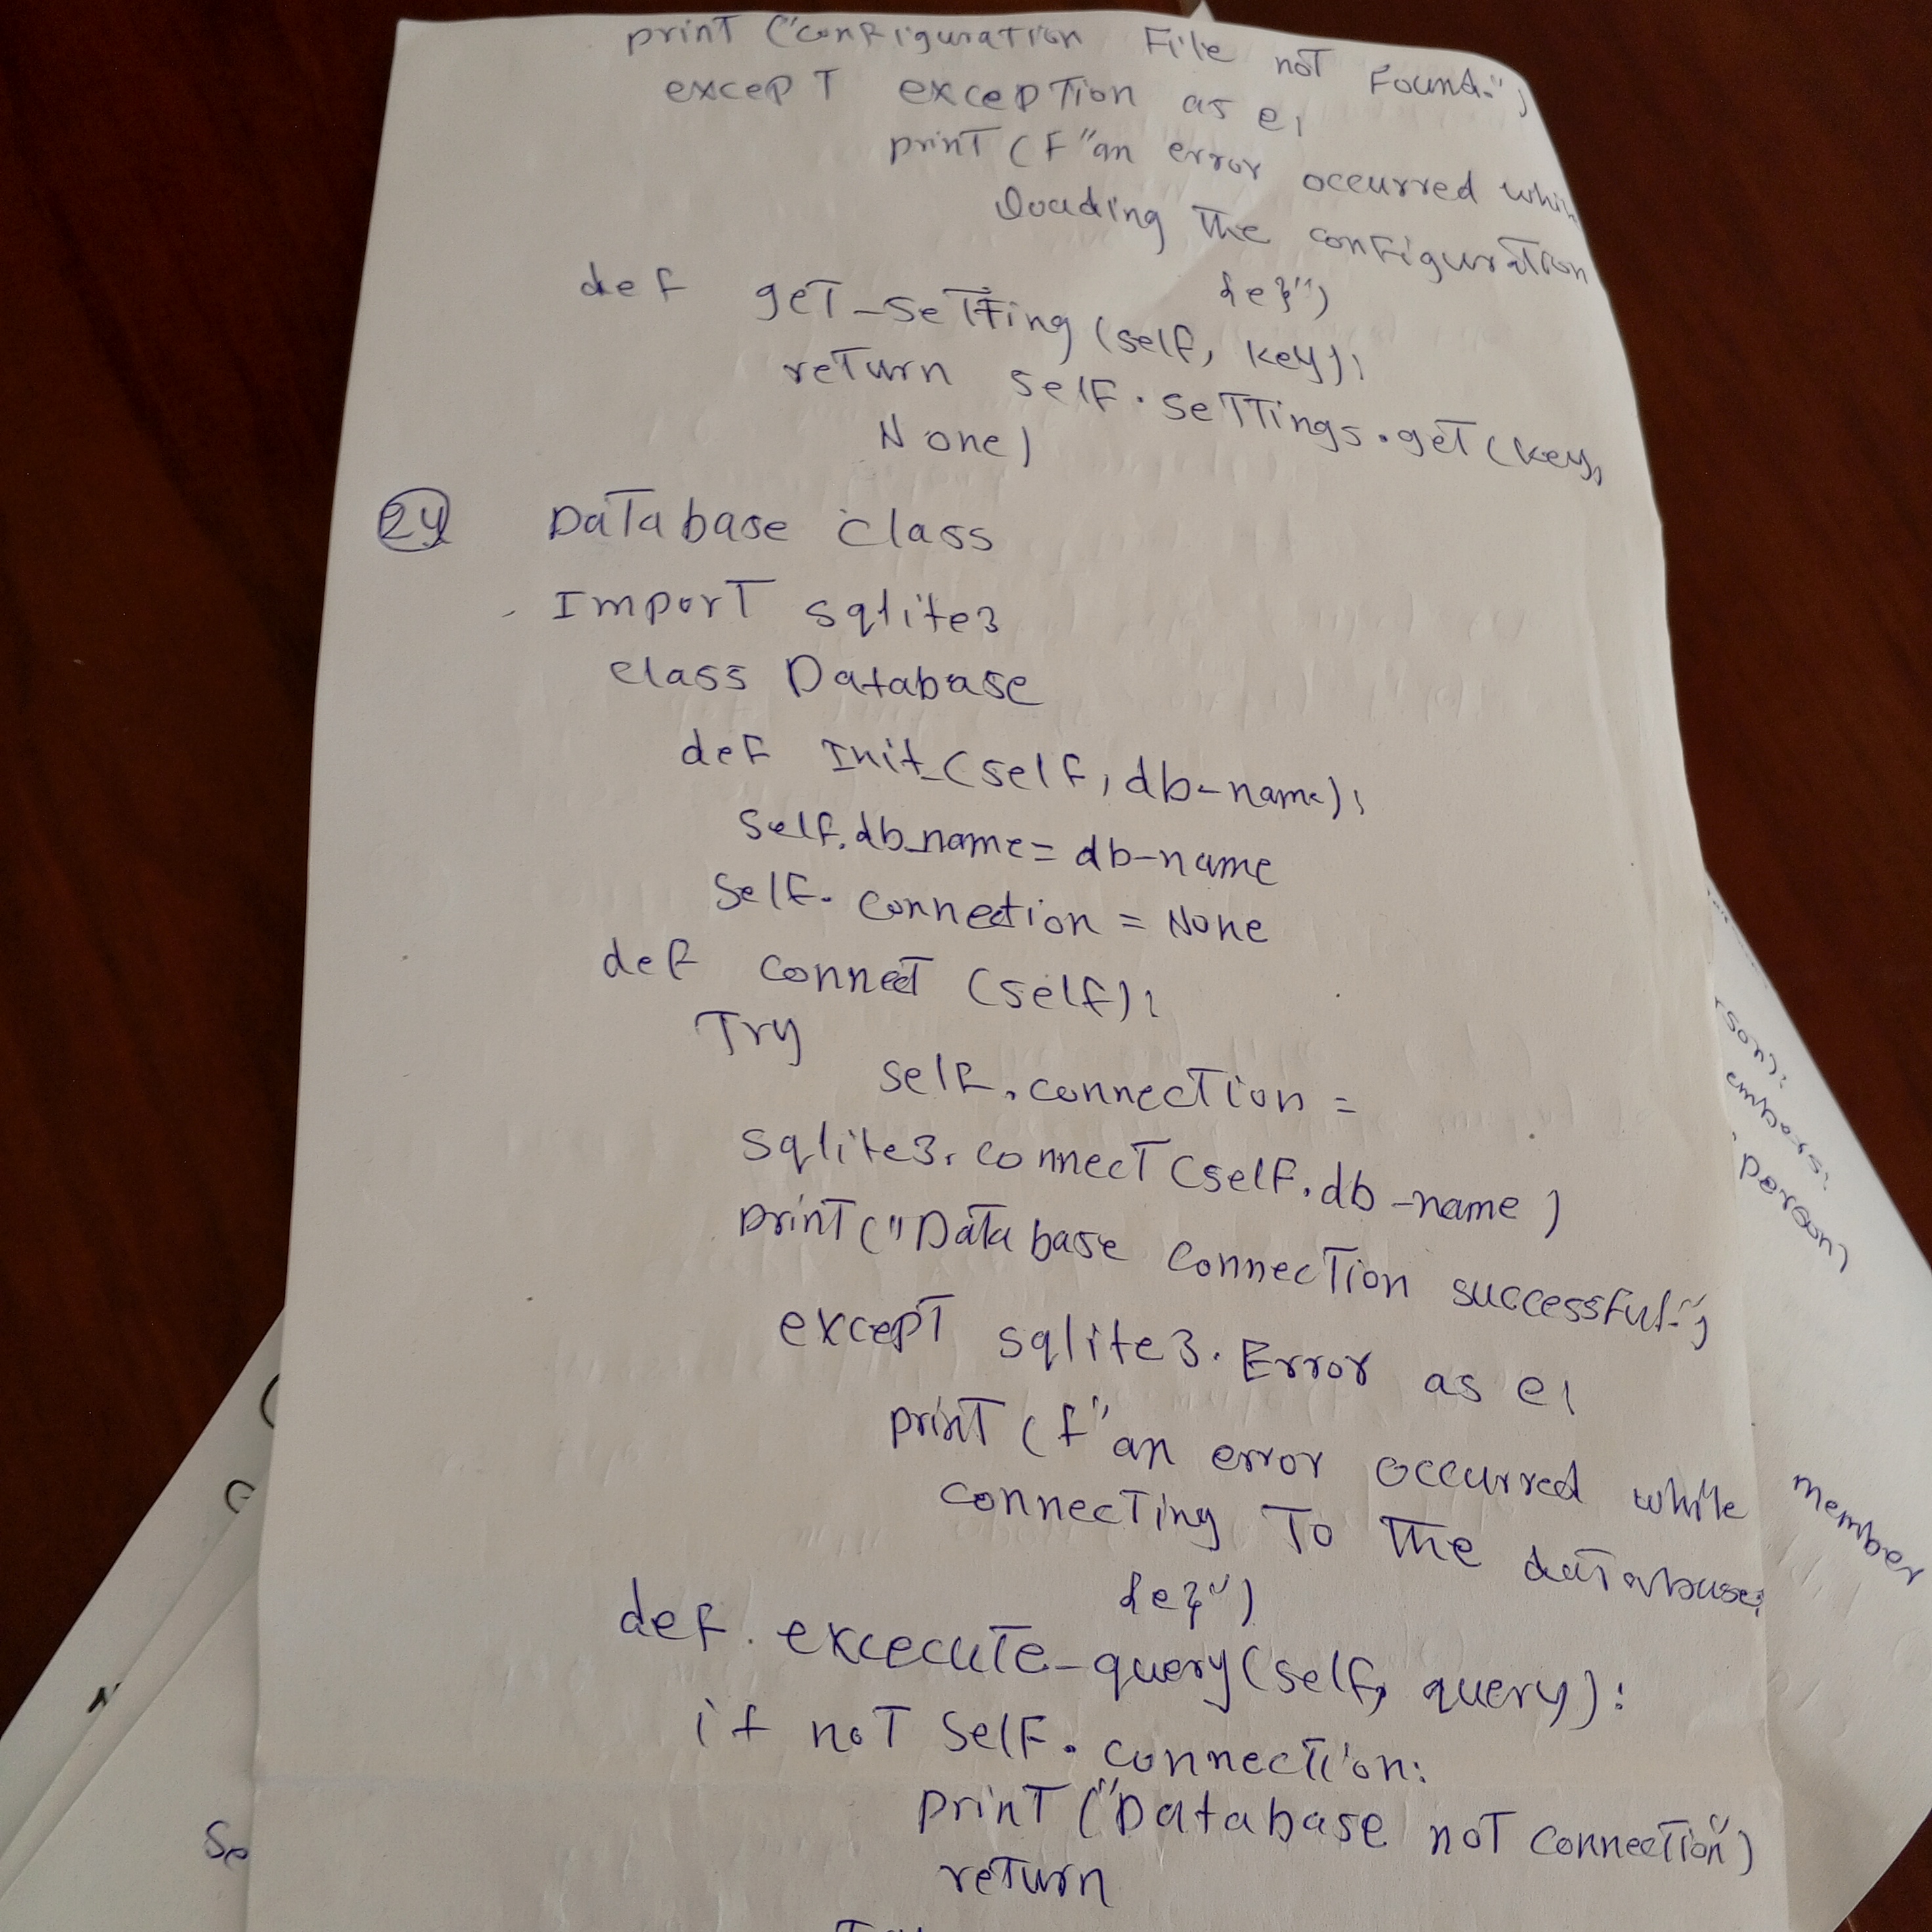 print ("configuration File not Found.")
except exception as e:
print (F"an error occurred while
loading the configuration
{e}")
def get_setting (self, key):
return self.settings.get(key,
None)
24 Database class
Import sqlite3
class Database
def Init_(self, db-name):
self.db_name = db-name
self.connection = None
def connect (self):
Try
self.connection =
sqlite3.connect (self.db-name)
print ("Database connection successful.")
except sqlite3.Error as e:
print (f"an error occurred while
connecting To The database:
{e}")
def excecute-query (self, query):
if not self.connection:
print ("Database not connection")
return
(son):
person)
member
So